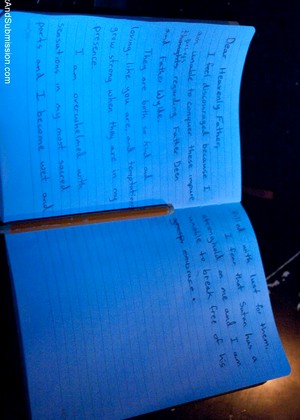 AndSubmission.com
Dear Heavenly Father,
I feel discouraged because I
am unable to conquer these impure
thoughts regarding Father Deen
and Father Wylde.
They are both so kind and
loving, like you are, and temptation
grow strong when they are in my
presence.
I am overwhelmed with
sensations in my most sacred
parts and I become wet and
with lust for them.
I fear that Satan has a
stronghold on me and I am
unable to break free of his
embrace.